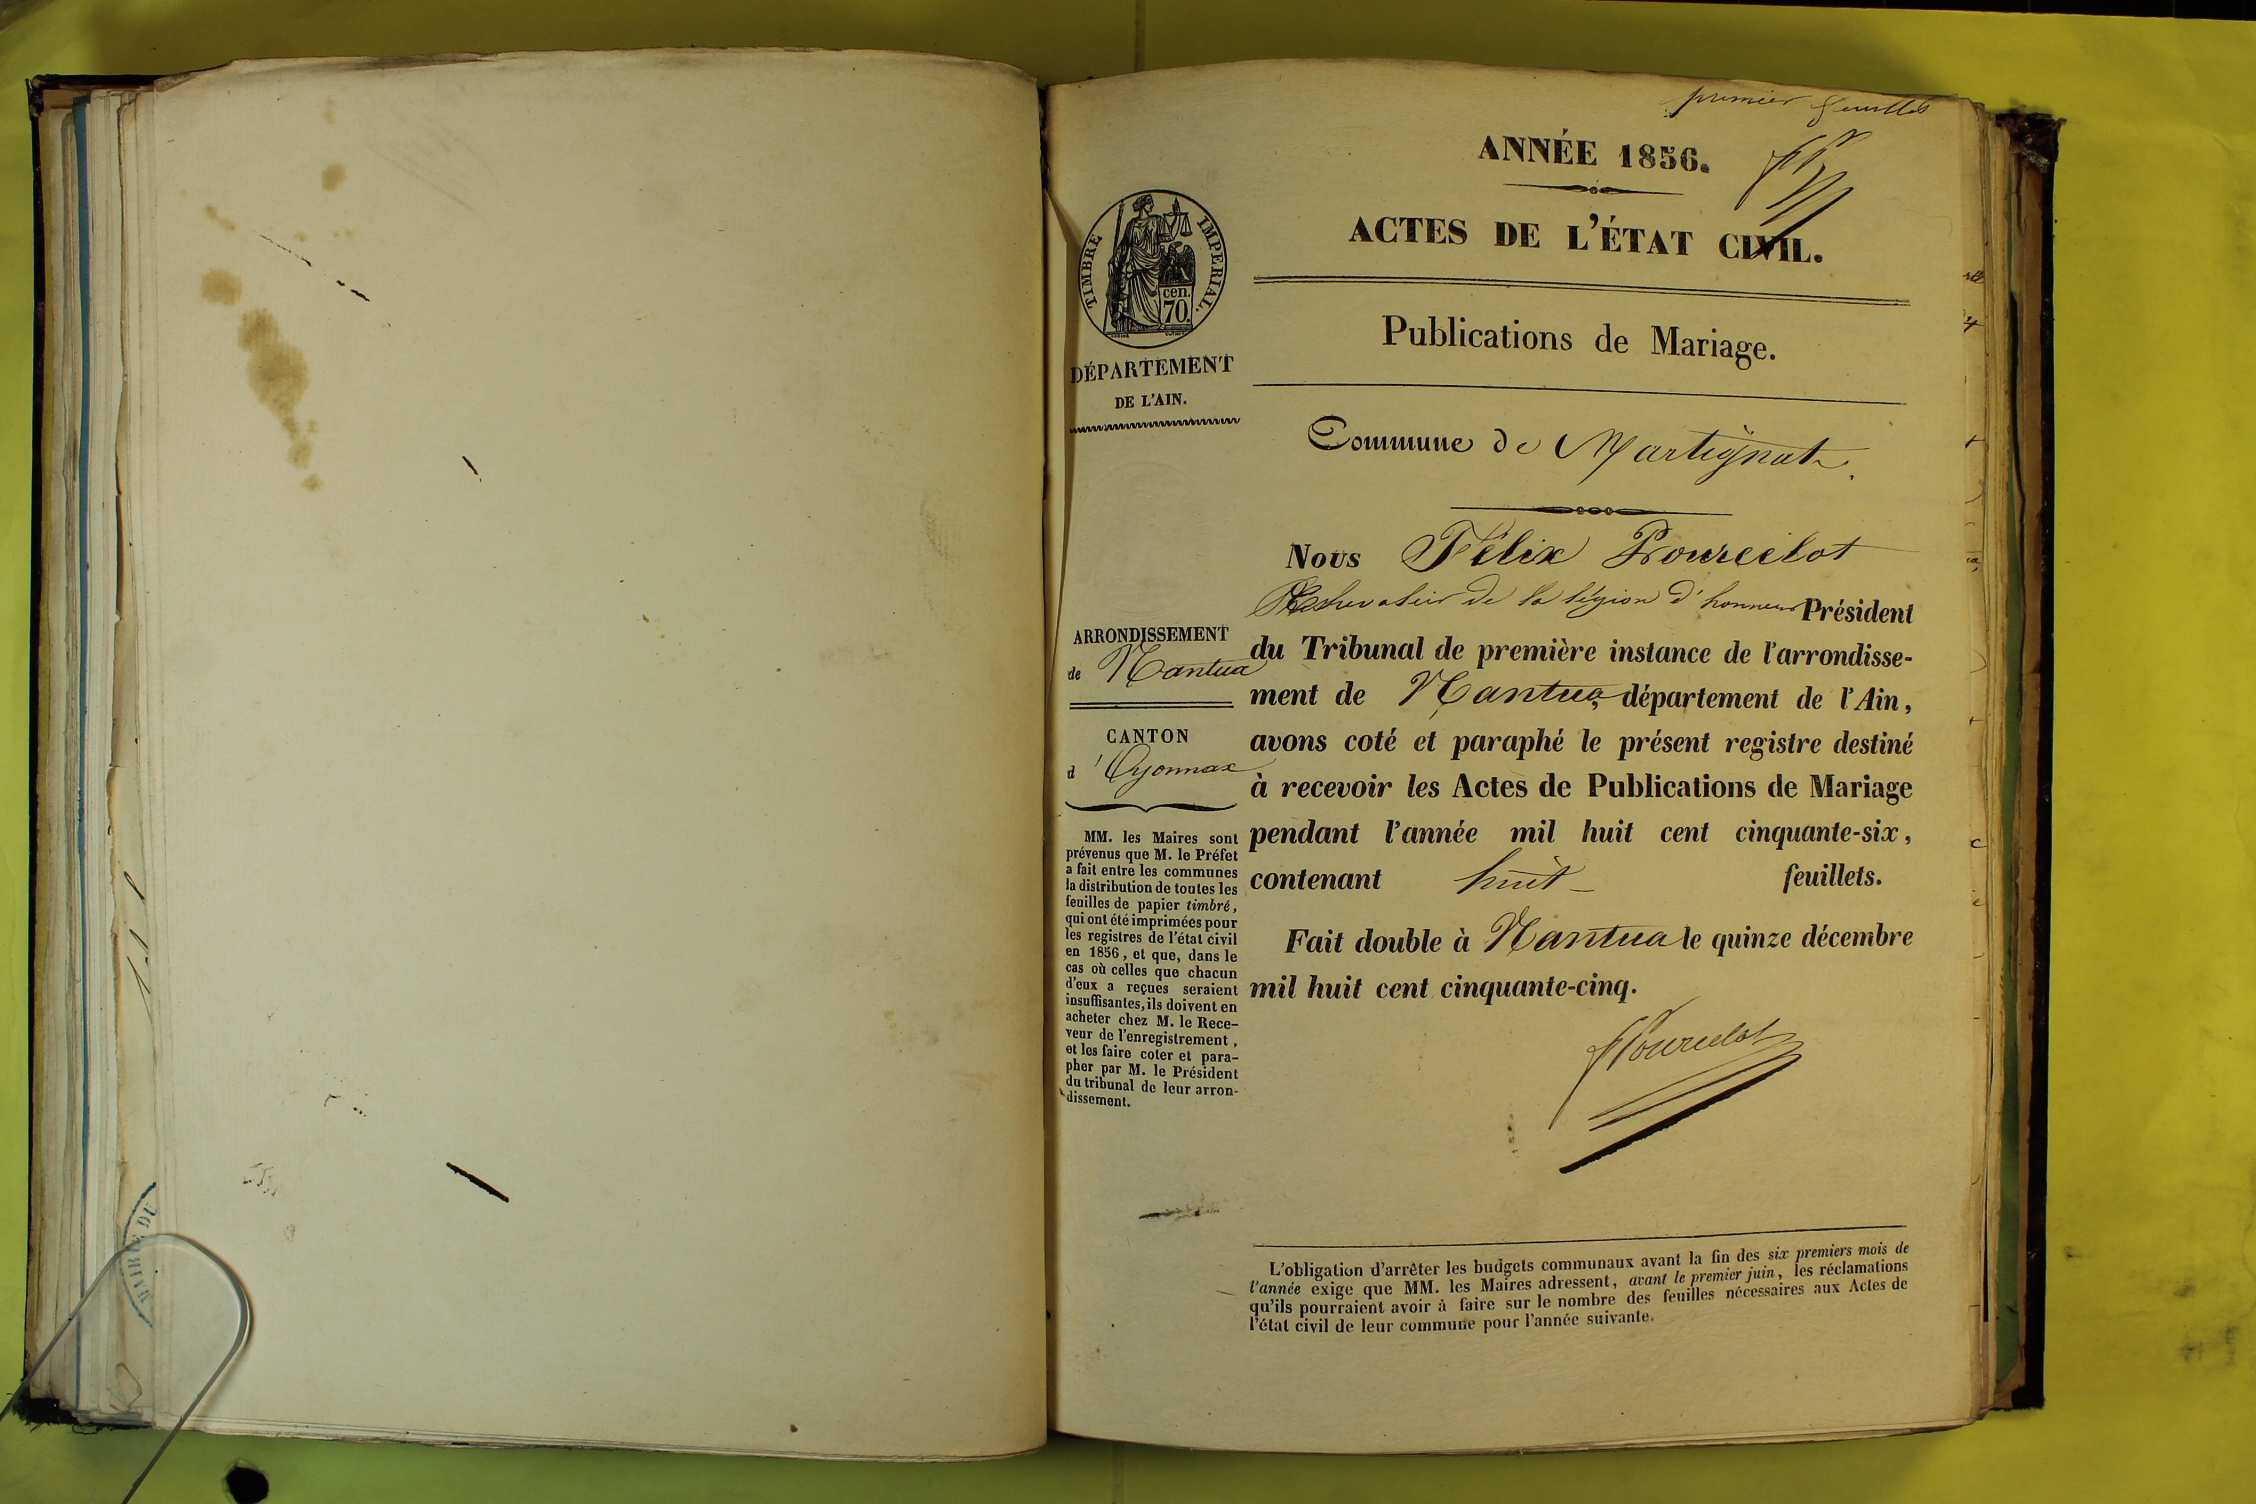 premier feuillet
ANNÉE 1856.
ACTES DE L'ÉTAT CIVIL.
Publications de Mariage.
TIMBRE IMPERIAL.
cen.
70.
DÉPARTEMENT
DE L'AIN.
ARRONDISSEMENT
de Nantua
CANTON
d'Oyonnax
MM. les Maires sont
prévenus que M. le Préfet
a fait entre les communes
la distribution de toutes les
feuilles de papier timbré,
qui ont été imprimées pour
les registres de l'état civil
en 1856, et que, dans le
cas où celles que chacun
d'eux a reçues seraient
insuffisantes, ils doivent en
acheter chez M. le Rece-
veur de l'enregistrement,
et les faire coter et para-
pher par M. le Président
du tribunal de leur arron-
dissement.
Commune de Martignat.
Nous Félix Pourcelot
Chevalier de la légion d'honneur Président
du Tribunal de première instance de l'arrondisse-
ment de Nantua, département de l'Ain,
avons coté et paraphé le présent registre destiné
à recevoir les Actes de Publications de Mariage
pendant l'année mil huit cent cinquante-six,
contenant huit feuillets.
Fait double à Nantua le quinze décembre
mil huit cent cinquante-cinq.
FPourcelot
L'obligation d'arrêter les budgets communaux avant la fin des six premiers mois de
l'année exige que MM. les Maires adressent, avant le premier juin, les réclamations
qu'ils pourraient avoir à faire sur le nombre des feuilles nécessaires aux Actes de
l'état civil de leur commune pour l'année suivante.
MAIRIE DU